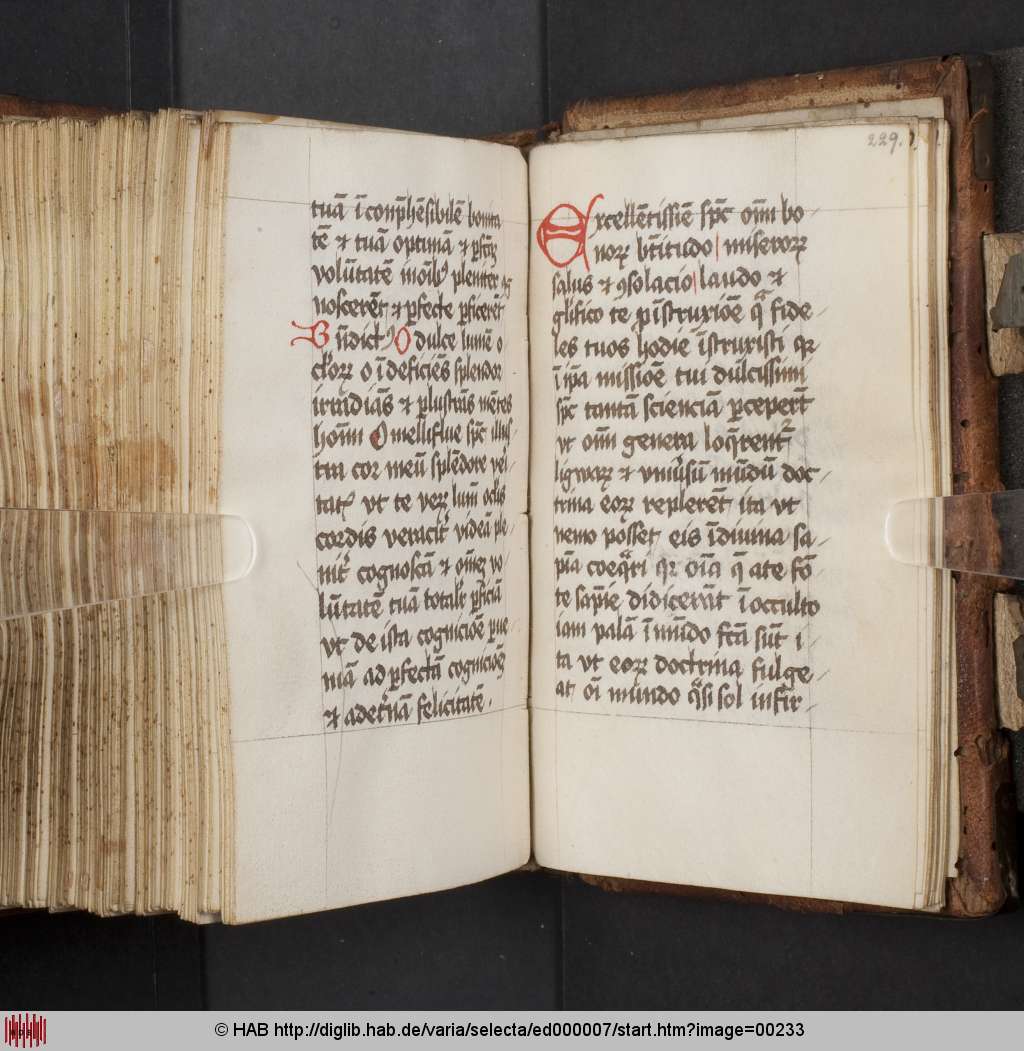 tuā ī conp̄hēsibilē bonita
tē et tuā optimā et ꝑfcā
volūtatē īnoībꝰ pleniter ag
noscerēt et ꝑfecte ꝑficerēt
Bn̄dictꝰ O dulce lumē o
culoꝝ o īdeficiēs splendor
irradiās et ꝑlustrās mētes
hoīm O melliflue spc̄ illus
tra cor meū splēdore veri
tatꝭ vt te verꝝ lum̄ oclis
cordis veracit͛ videā ple
nit͛ cognoscā et om̄ez vo
lūtatē tuā totalr ꝑficiā
vt de ista cognicioē ꝑue
niā ad ꝑfectā cognicioēz
et adet͛nā felicitatē.
229.
Excellētissiē spc̄ oīm bo
noꝝ bt̄itudo miseroꝝ
salus et ꝯsolacio laudo et
glifico te ꝓ īstruxiōe qͣ fide
les tuos hodie īstruxisti qꝛ
ī ip̄a missioē tui dulcissimi
spc̄ tantā scienciā ꝑceper̄t
vt oīm genera loqͣrent͛
ligwaꝝ et vniu͛sū mūdū doc
trina eoꝝ replerēt ita vt
nemo posset eis ī diuina sa
pīa coeqͣri qꝛ oīa q̄ a te fō
te sapīe didicer̄t ī occulto
iam palā ī mūdo fc̄a sūt i
ta vt eoꝝ doctrina fulge
at oī mūndo qͣsi sol in fir
© HAB http://diglib.hab.de/varia/selecta/ed000007/start.htm?image=00233